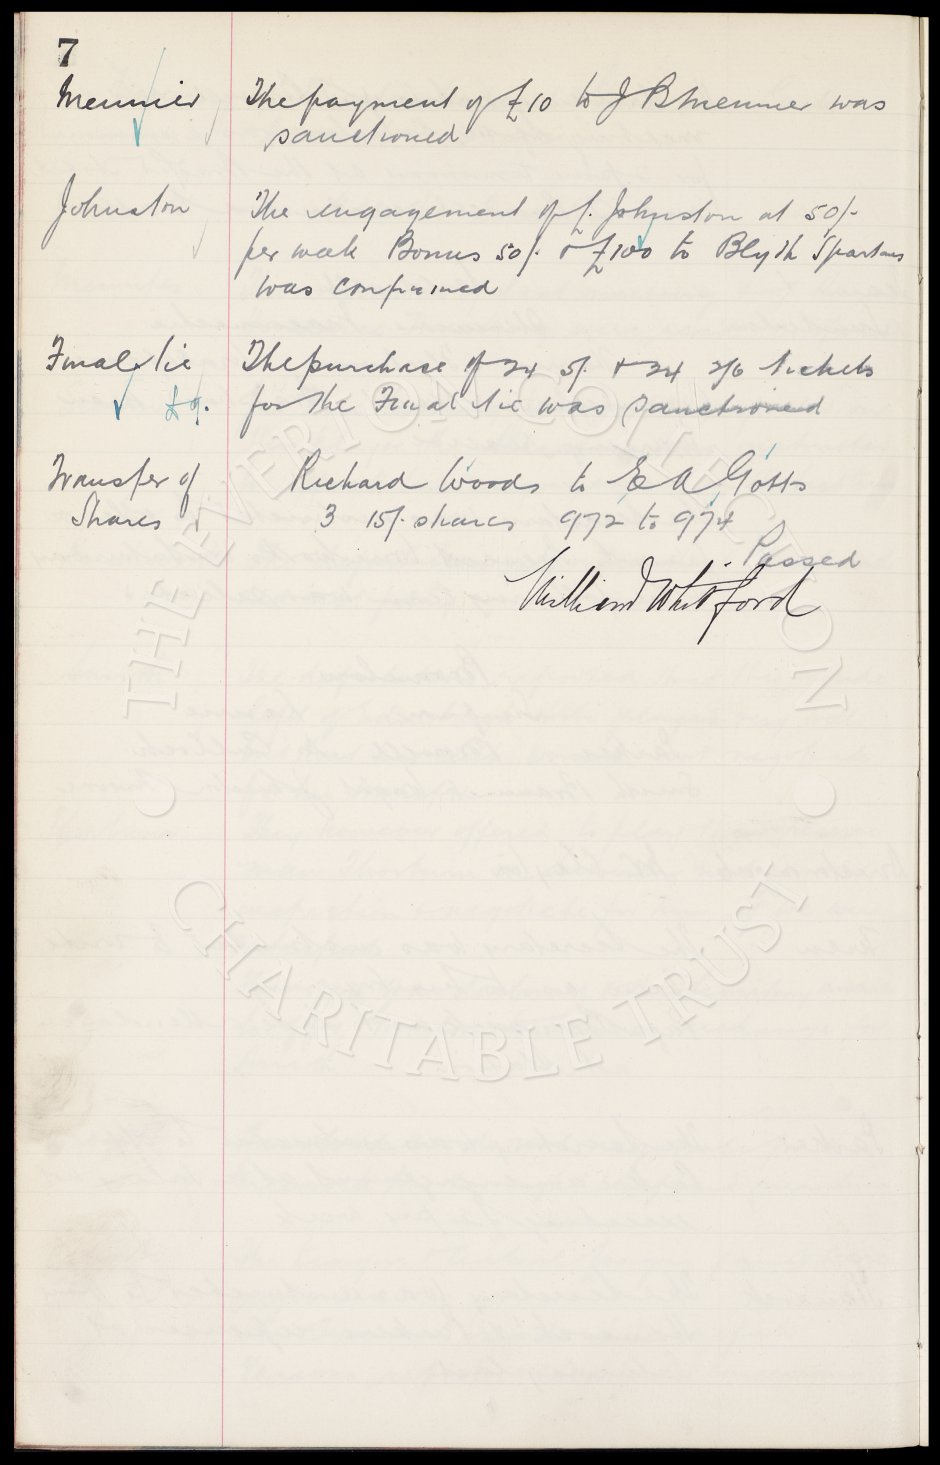 7
Meunier The payment of £10 to J B Meunier was
sanctioned
Johnston The engagement of J. Johnston at 50/-
per week Bonus 50/- & £100 to Blyth Spartans
was confirmed
Final tie The purchase of 24 5/- & 24 2/6 tickets
£9. for the Final tie was sanctioned
Transfer of Richard Woods to E A Gotts
Shares 3 15/- shares 972 to 974
Passed
William Whitford
THE EVERTON COLLECTION
CHARITABLE TRUST